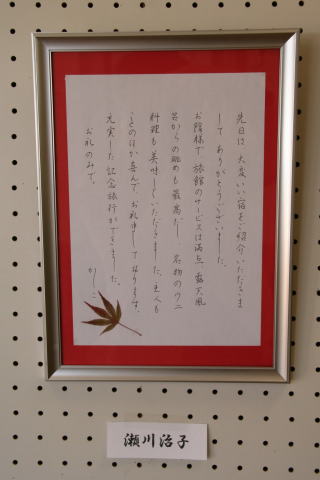 先日は、大変いい宿をご紹介いただきま
して ありがとうございました。
お陰様で、旅館のサービスは満点、露天風
呂からの眺めも最高だし、名物のカニ
料理も美味しくいただきました。主人も
ことのほか喜んで、お礼申して おります。
充実した 記念旅行ができました。
お礼のみで。
かしこ
瀬川治子